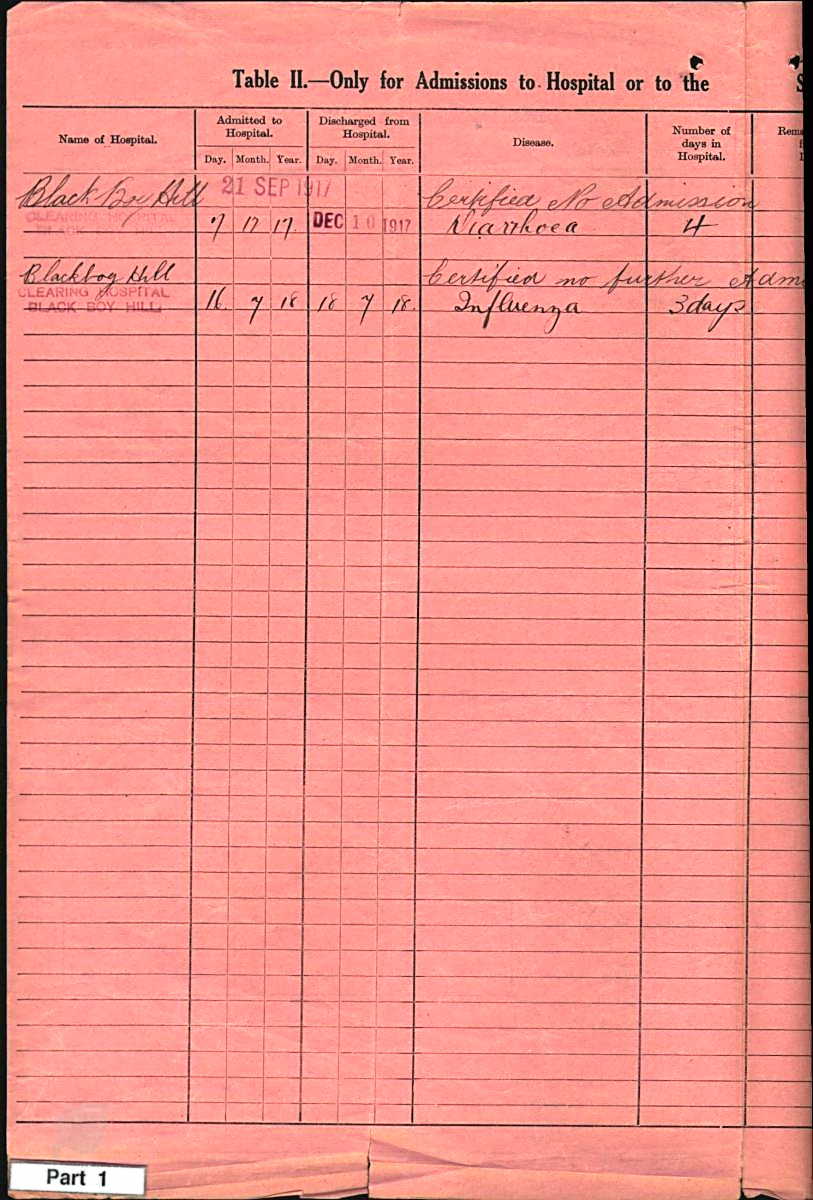 Table II.—Only for Admissions to Hospital or to the S
Name of Hospital.
Admitted to Hospital.
Discharged from Hospital.
Disease.
Number of days in Hospital.
Day. Month. Year. Day. Month. Year.
Black Boy Hill 21 SEP 1917 Certified No Admission
CLEARING HOSPITAL
BLACK 7 12 17. DEC 10 1917 Diarrhoea 4
Blackboy Hill Certified no further Adm
CLEARING HOSPITAL
BLACK BOY HILL 16. 7 18 18 7 18. Influenza 3 days
Part 1